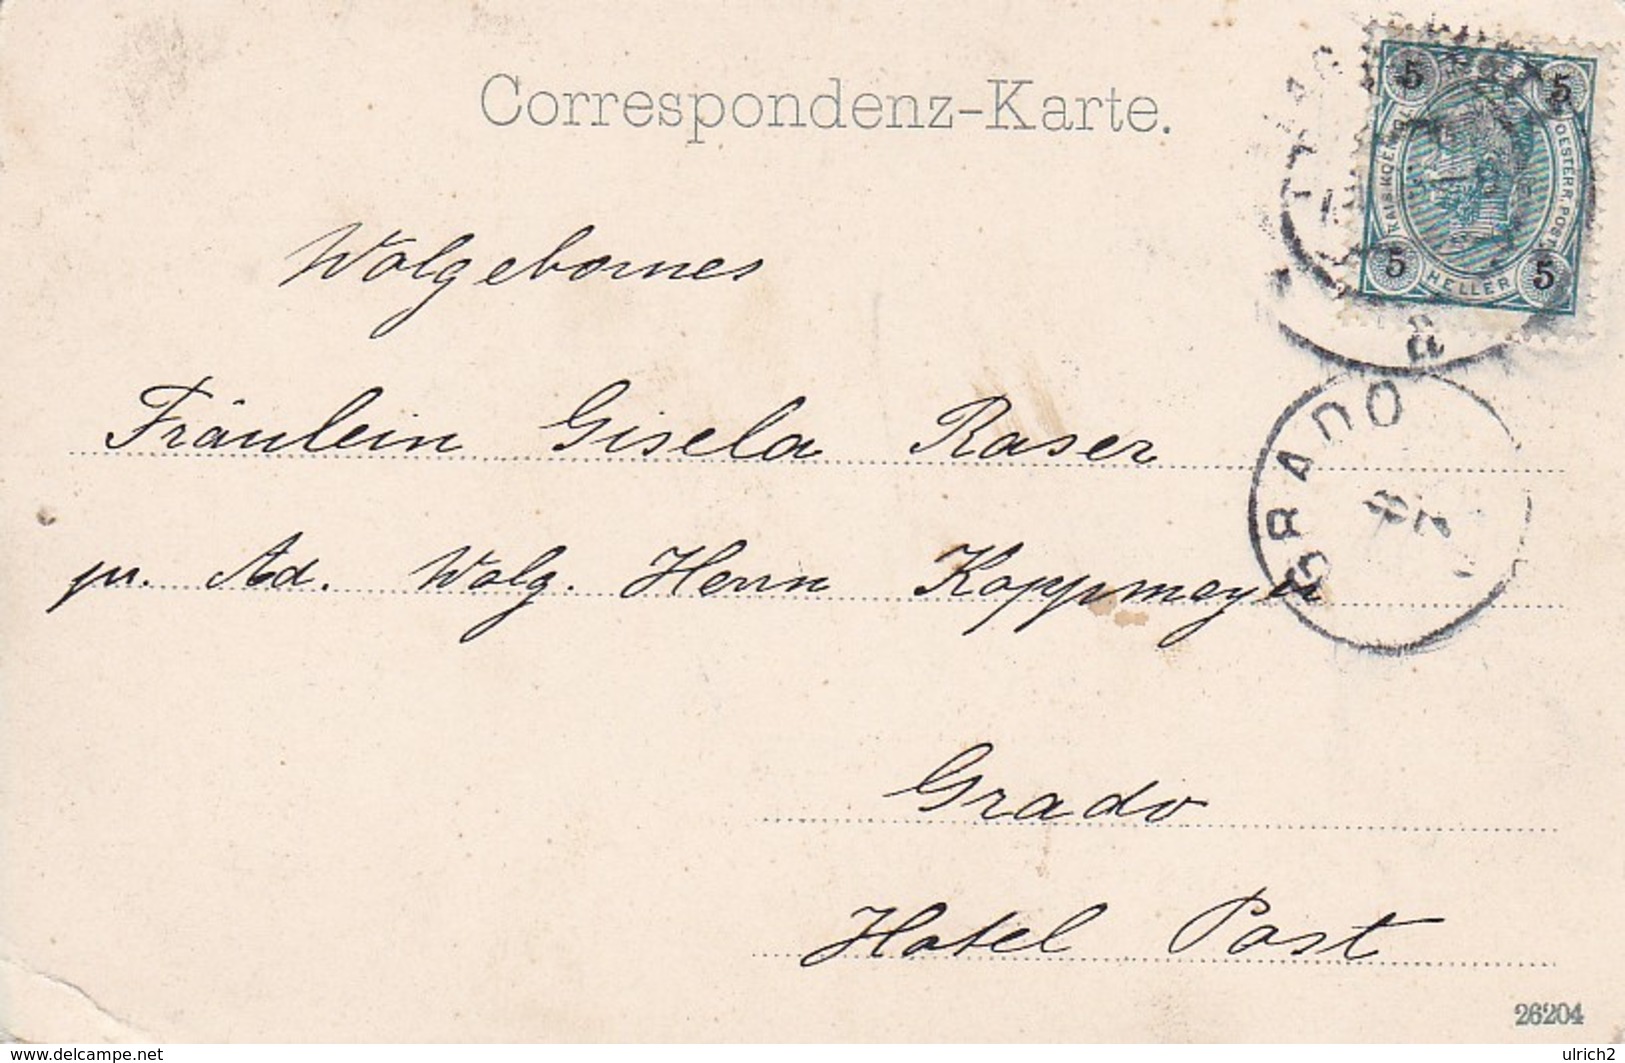 Correspondenz-Karte.
5 5
KAIS. KOENIGL. OESTERR. POST
5 HELLER 5
Wolgebornes
Fräulein Gisela Raser
GRADO
pr. Ad. Wolg. Herrn Koppmeyer
Grado
Hotel Post
26204
www.delcampe.net
ulrich2